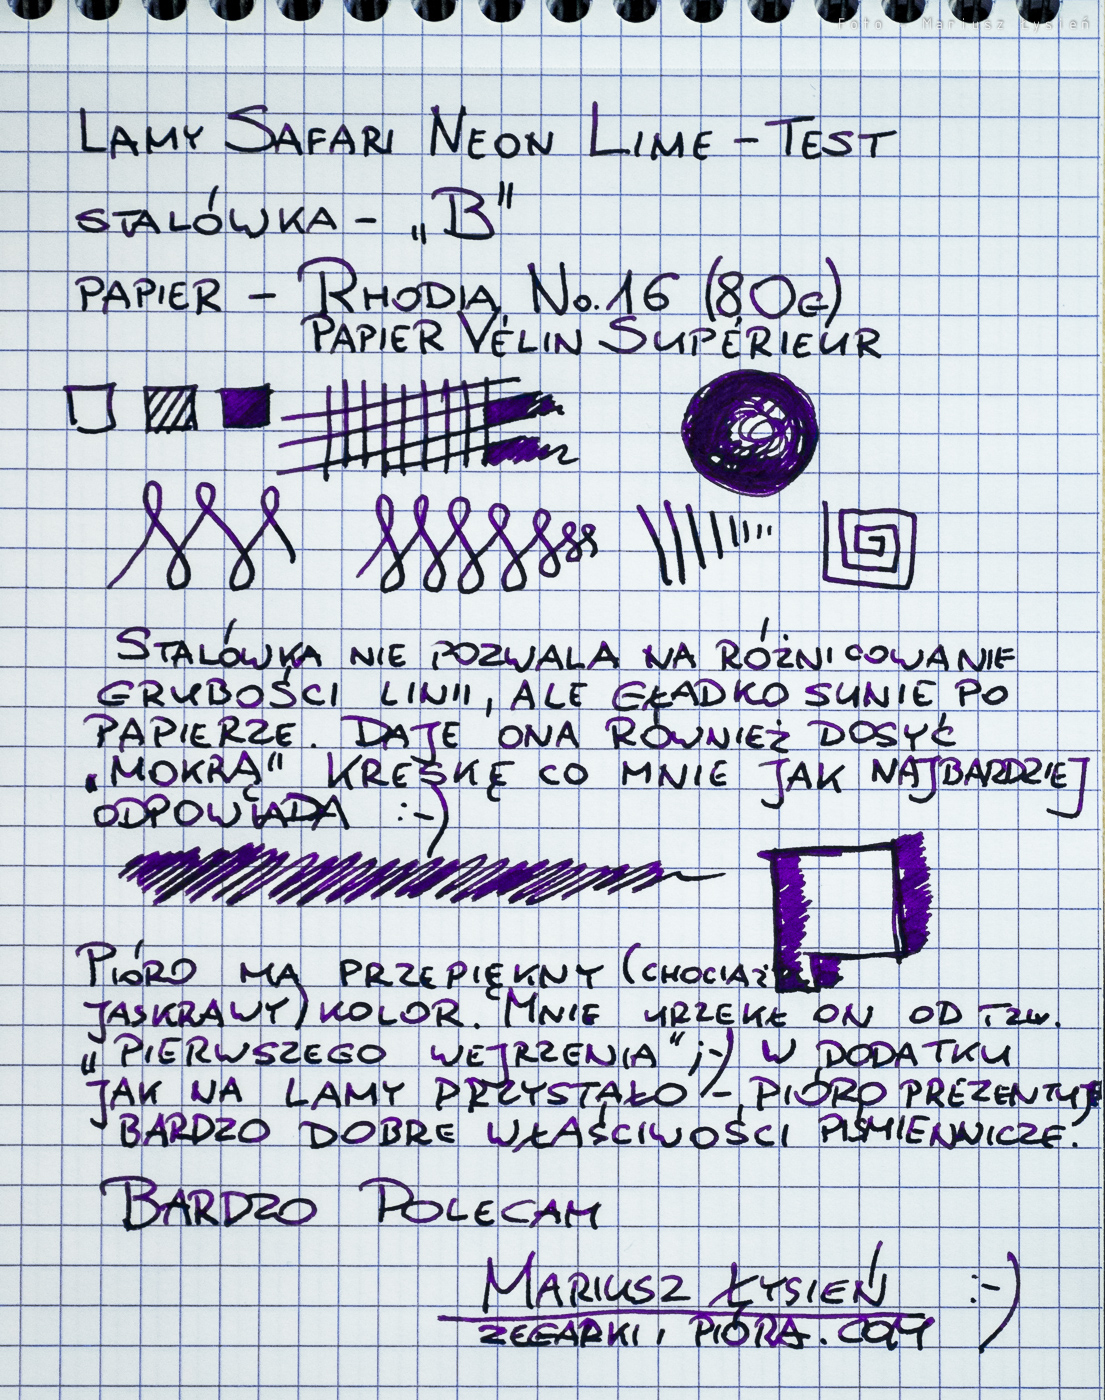 Foto - Mariusz Łysień
LAMY SAFARI NEON LIME - TEST
STALÓWKA - „B"
PAPIER - RHODIA No. 16 (80G)
PAPIER VÉLIN SUPÉRIEUR
STALÓWKA NIE POZWALA NA RÓŻNICOWANIE
GRUBOŚCI LINII, ALE GŁADKO SUNIE PO
PAPIERZE. DAJE ONA RÓWNIEŻ DOSYĆ
„MOKRĄ" KRESKĘ CO MNIE JAK NAJBARDZIEJ
ODPOWIADA :-)
PIÓRO MA PRZEPIĘKNY (CHOCIAŻ
JASKRAWY) KOLOR. MNIE URZEKŁ ON OD TZW.
„PIERWSZEGO WEJRZENIA" ;-) W DODATKU
JAK NA LAMY PRZYSTAŁO - PIÓRO PREZENTUJE
BARDZO DOBRE WŁAŚCIWOŚCI PIŚMIENNICZE.
BARDZO POLECAM
MARIUSZ ŁYSIEŃ :-)
ZEGARKIIPIÓRA.COM